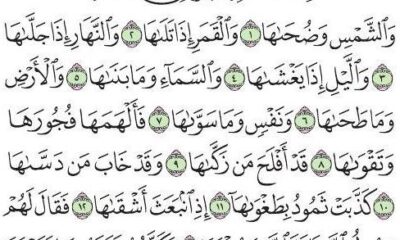 وَٱلشَّمْسِ وَضُحَىٰهَا ١ وَٱلْقَمَرِ إِذَا تَلَىٰهَا ٢ وَٱلنَّهَارِ إِذَا جَلَّىٰهَا
٣ وَٱلَّيْلِ إِذَا يَغْشَىٰهَا ٤ وَٱلسَّمَآءِ وَمَا بَنَىٰهَا ٥ وَٱلْأَرْضِ
وَمَا طَحَىٰهَا ٦ وَنَفْسٍ وَمَا سَوَّىٰهَا ٧ فَأَلْهَمَهَا فُجُورَهَا
وَتَقْوَىٰهَا ٨ قَدْ أَفْلَحَ مَن زَكَّىٰهَا ٩ وَقَدْ خَابَ مَن دَسَّىٰهَا
١٠ كَذَّبَتْ ثَمُودُ بِطَغْوَىٰهَآ ١١ إِذِ ٱنۢبَعَثَ أَشْقَىٰهَا ١٢ فَقَالَ لَهُمْ